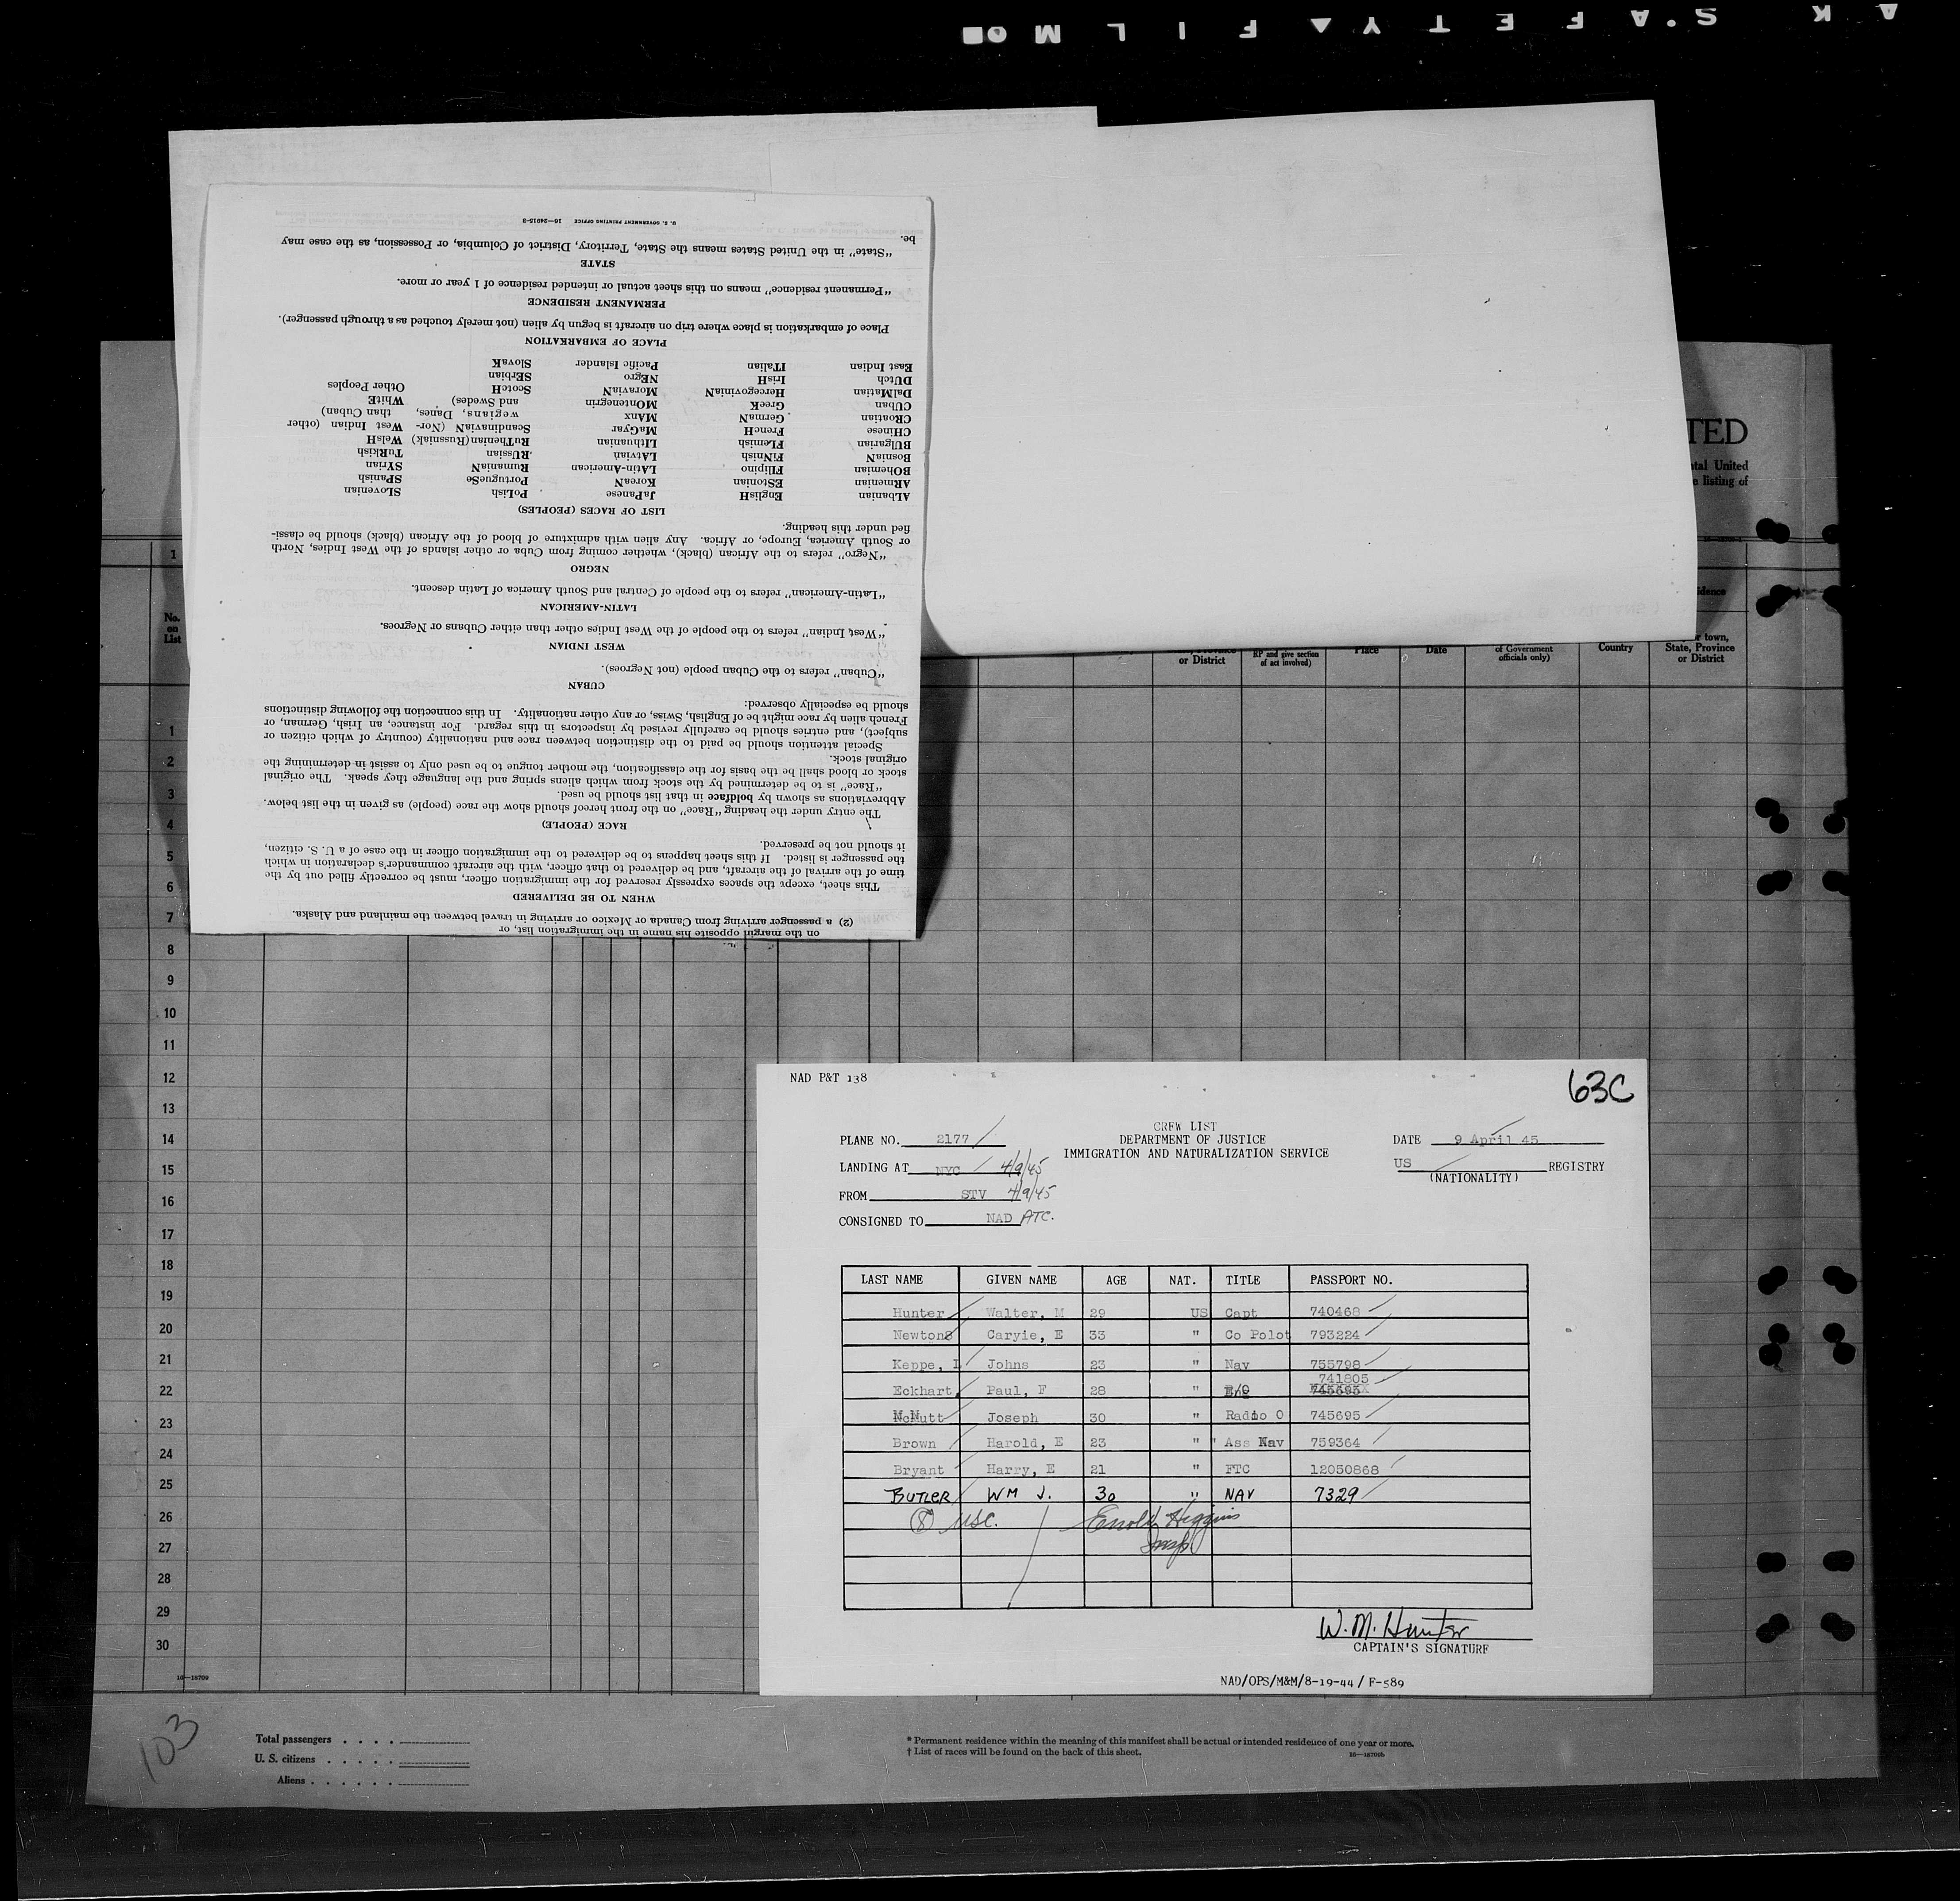 SAFETY FILM
U. S. GOVERNMENT PRINTING OFFICE 16—24015-3
on the margin opposite his name in the immigration list, or
(2) a passenger arriving from Canada or Mexico or arriving in travel between the mainland and Alaska.
WHEN TO BE DELIVERED
This sheet, except the spaces expressly reserved for the immigration officer, must be correctly filled out by the
time of the arrival of the aircraft, and be delivered to that officer, with the aircraft commander's declaration in which
the passenger is listed. If this sheet happens to be delivered to the immigration officer in the case of a U. S. citizen,
it should not be preserved.
RACE (PEOPLE)
The entry under the heading "Race" on the front hereof should show the race (people) as given in the list below.
Abbreviations as shown by boldface in that list should be used.
"Race" is to be determined by the stock from which aliens spring and the language they speak. The original
stock or blood shall be the basis for the classification, the mother tongue to be used only to assist in determining the
original stock.
Special attention should be paid to the distinction between race and nationality (country of which citizen or
subject), and entries should be carefully revised by inspectors in this regard. For instance, an Irish, German, or
French alien by race might be of English, Swiss, or any other nationality. In this connection the following distinctions
should be especially observed:
CUBAN
"Cuban" refers to the Cuban people (not Negroes).
WEST INDIAN
"West Indian" refers to the people of the West Indies other than either Cubans or Negroes.
LATIN-AMERICAN
"Latin-American" refers to the people of Central and South America of Latin descent.
NEGRO
"Negro" refers to the African (black), whether coming from Cuba or other islands of the West Indies, North
or South America, Europe, or Africa. Any alien with admixture of blood of the African (black) should be classi-
fied under this heading.
LIST OF RACES (PEOPLES)
ALbanian EnglisH JaPanese PoLish SLOvenian
ARMenian EStonian KoreaN PortugueSe SPanish
BOhemian FIlipino LAtin-American RumaniaN SYrian
BosniaN FiNnish LATvian RUssian TuRKish
BUlgarian FLemish LIthuanian RuThenian (Russniak) WelsH
CHinese FrencH MaGyar ScandinaviaN (Nor- West Indian (other
CRoatian GermaN MAnx wegians, Danes, than Cuban)
CUban GreeK MOntenegrin and Swedes) WhitE
DalMatian HercegoviniaN MoraviaN ScotcH Other Peoples
DUtch IrisH NEgro SErbian
East Indian ITalian Pacific Islander SlovaK
PLACE OF EMBARKATION
Place of embarkation is place where trip on aircraft is begun by alien (not merely touched as a through passenger).
PERMANENT RESIDENCE
"Permanent residence" means on this sheet actual or intended residence of 1 year or more.
STATE
"State" in the United States means the State, Territory, District of Columbia, or Possession, as the case may
be.
TED
United
listing of
1
No.
on
List
or District
RP and give section
of act involved)
Place
Date
of Government
officials only)
Country
town,
State, Province
or District
1
2
3
4
5
6
7
8
9
10
11
12
13
14
15
16
17
18
19
20
21
22
23
24
25
26
27
28
29
30
16—18709
103
Total passengers
U. S. citizens
Aliens
* Permanent residence within the meaning of this manifest shall be actual or intended residence of one year or more.
† List of races will be found on the back of this sheet.
16—18709b
NAD P&T 138
63C
CREW LIST
DEPARTMENT OF JUSTICE
IMMIGRATION AND NATURALIZATION SERVICE
PLANE NO. 2177
DATE 9 April 45
LANDING AT NYC 4/9/45
US REGISTRY
(NATIONALITY)
FROM STV 4/9/45
CONSIGNED TO NAD ATC.
LAST NAME GIVEN NAME AGE NAT. TITLE PASSPORT NO.
Hunter Walter, M 29 US Capt 740468
Newton Caryie, E 33 " Co Polot 793224
Keppe, L Johns 23 " Nav 755798
741805
Eckhart Paul, F 28 " E/O 745695
McNutt Joseph 30 " Radio O 745695
Brown Harold, E 23 " Ass Nav 759364
Bryant Harry, E 21 " FTC 12050868
BUTLER WM J. 30 " NAV 7329
⑧ USC. Enoch Higgins
Insp.
W. M. Hunter
CAPTAIN'S SIGNATURE
NAD/OPS/M&M/8-19-44 / F-589